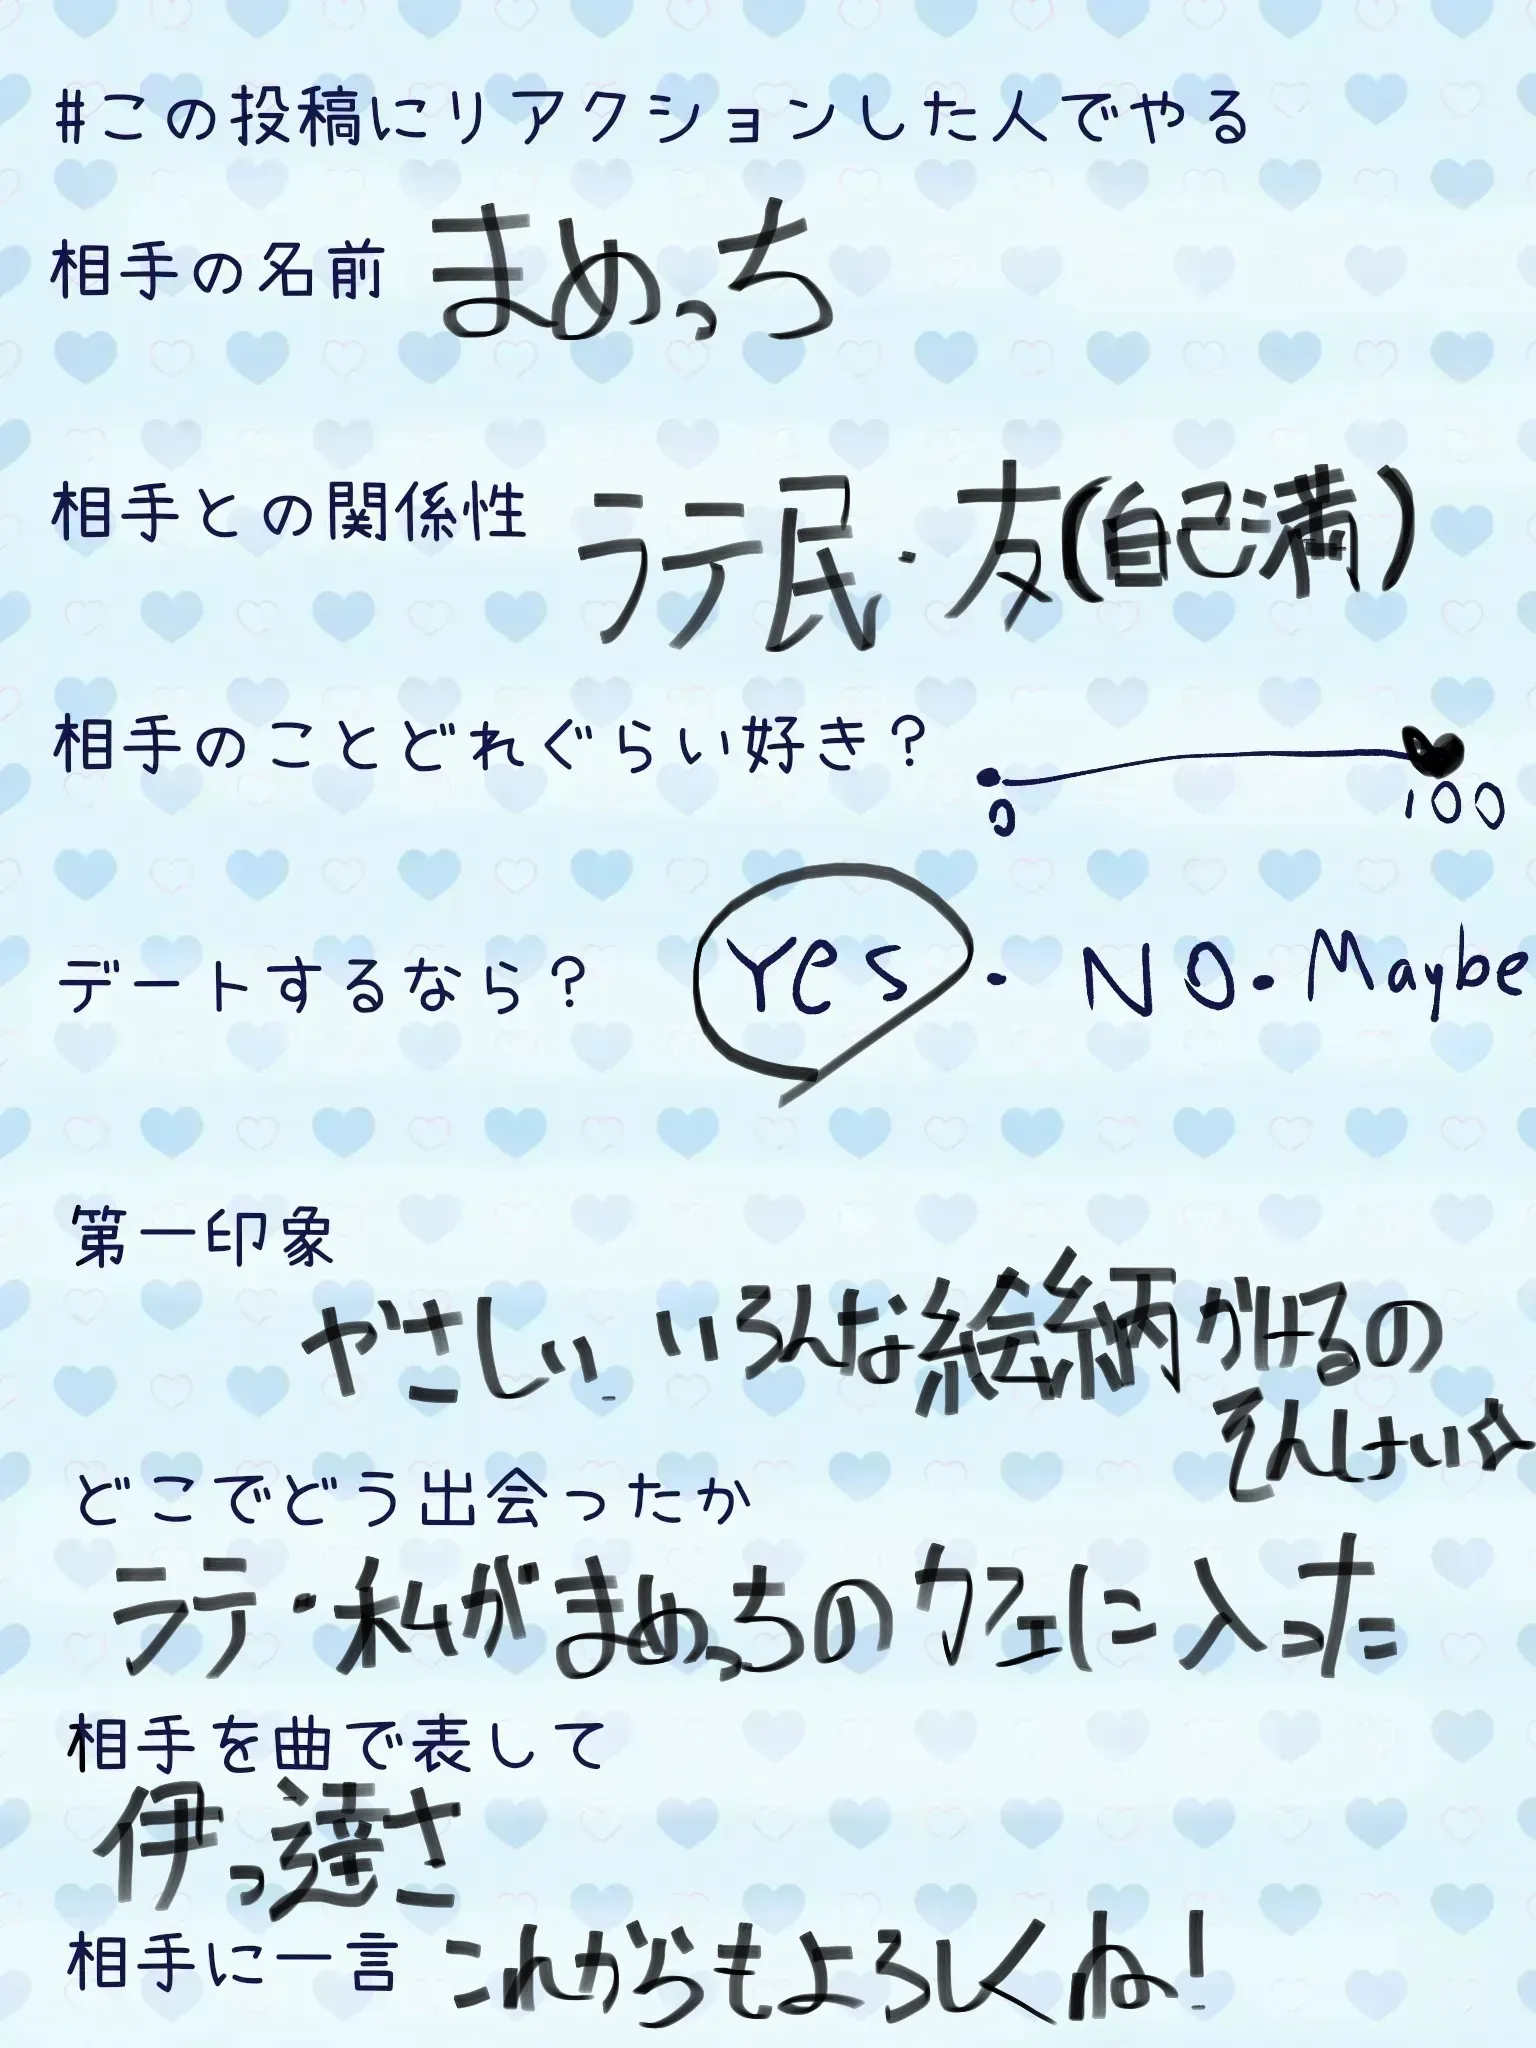 #この投稿にリアクションした人でやる
相手の名前 まめっち
相手との関係性 ラテ民・友(自己満)
相手のことどれぐらい好き?
0 100
デートするなら? Yes・NO・Maybe
第一印象
やさしい いろんな絵柄かけるの
そんけい☆
どこでどう出会ったか
ラテ・私がまめっちのカフェに入った
相手を曲で表して
伊っ達さ
相手に一言 これからもよろしくね!